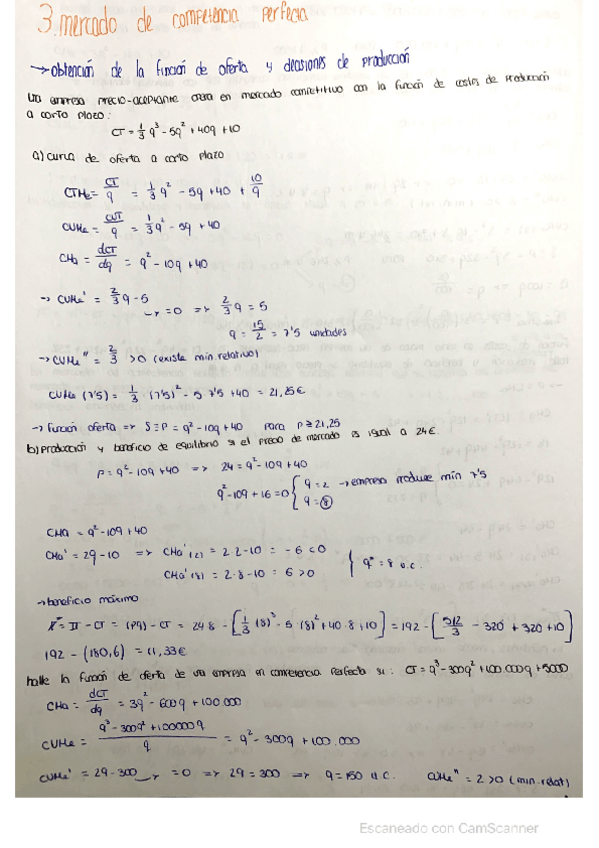 3. mercado de competencia perfecta
→ obtención de la función de oferta y decisiones de producción
Una empresa precio-aceptante opera en mercado competitivo con la función de costes de producción
a corto plazo:
CT = 1/3 q³ - 5q² + 40q + 10
a) curva de oferta a corto plazo
CTMe = CT/q = 1/3 q² - 5q + 40 + 10/q
CVMe = CVT/q = 1/3 q² - 5q + 40
CMa = dCT/dq = q² - 10q + 40
→ CVMe' = 2/3 q - 5 → = 0 => 2/3 q = 5
q = 15/2 = 7'5 unidades
→ CVMe'' = 2/3 > 0 (existe min. relativo)
CVMe (7'5) = 1/3 · (7'5)² - 5 · 7'5 + 40 = 21,25€
→ Función oferta => S ≡ P = q² - 10q + 40 para P ≥ 21,25
b) producción y beneficio de equilibrio si el precio de mercado es igual a 24€.
P = q² - 10q + 40 => 24 = q² - 10q + 40
q² - 10q + 16 = 0 { q = 2 → empresa produce mín 7'5
q = 8
CMa = q² - 10q + 40
CMa' = 2q - 10 => CMa' (2) = 2·2 - 10 = -6 < 0
CMa' (8) = 2·8 - 10 = 6 > 0 } q* = 8 u.c.
→ beneficio máximo
= IT - CT = (P·q) - CT = 24·8 - [1/3 (8)³ - 5·(8)² + 40·8 + 10] = 192 - [512/3 - 320 + 320 + 10]
192 - (180,6) = 11,33€
halle la función de oferta de una empresa en competencia perfecta si: CT = q³ - 300q² + 100.000q + 5000
CMa = dCT/dq = 3q² - 600q + 100.000
CVMe = q³ - 300q² + 100000q / q = q² - 300q + 100.000
CVMe' = 2q - 300 → = 0 => 2q = 300 => q = 150 u.c. CVMe'' = 2 > 0 (min. relat)
Escaneado con CamScanner